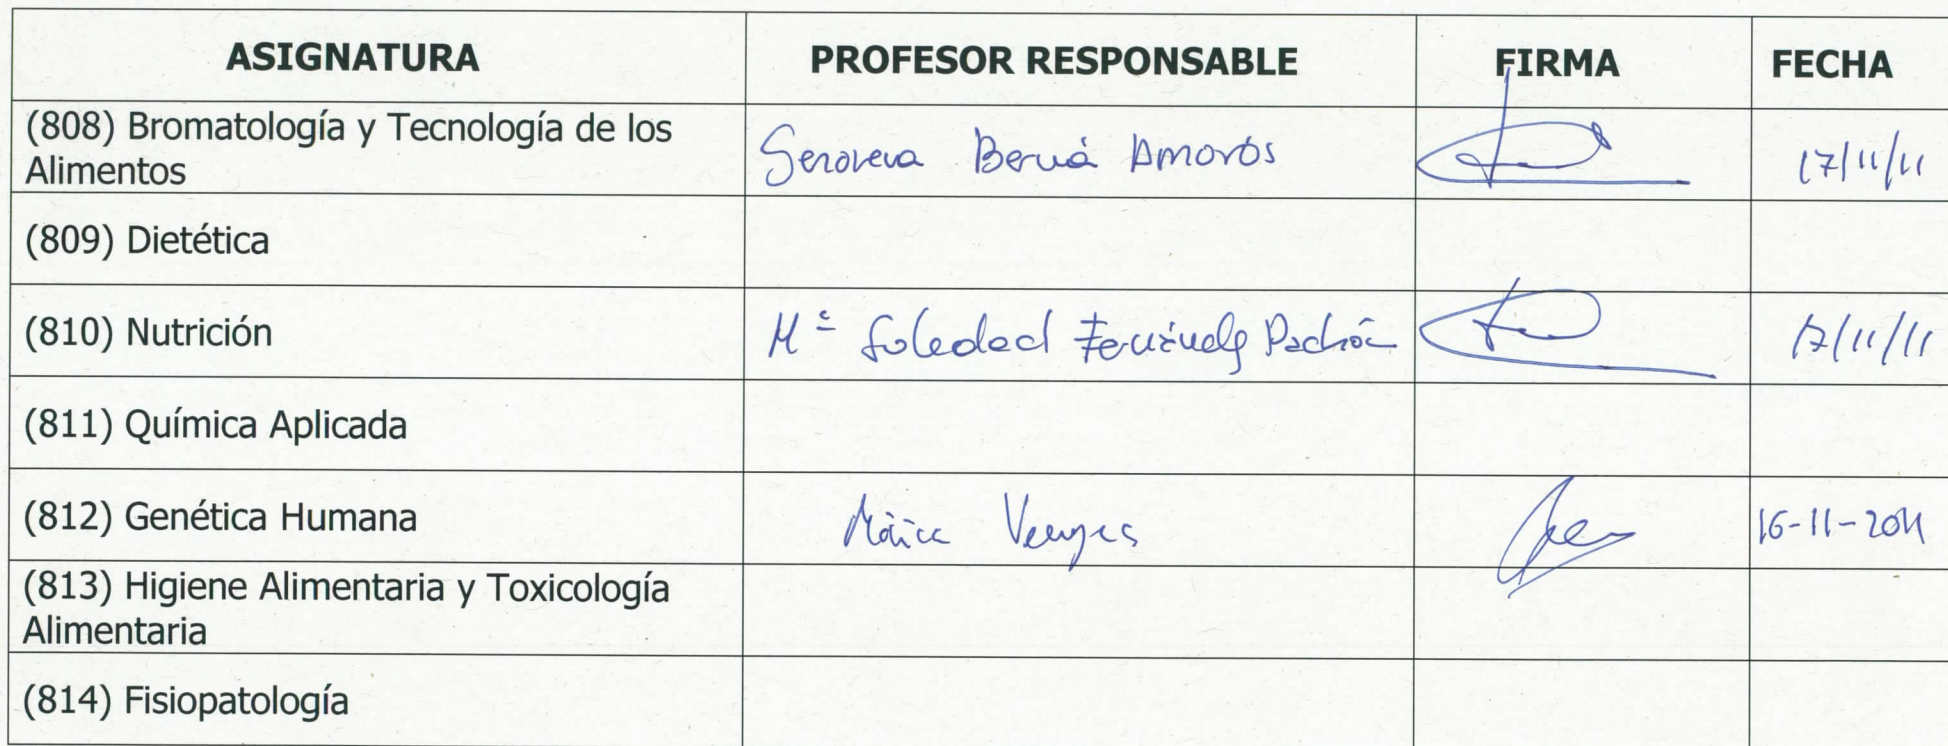 ASIGNATURA PROFESOR RESPONSABLE FIRMA FECHA
(808) Bromatología y Tecnología de los
Alimentos
Genoveva Berná Amorós 17/11/11
(809) Dietética
(810) Nutrición Mª Soledad Fernández Pachón 17/11/11
(811) Química Aplicada
(812) Genética Humana Mónica Venegas 16-11-2011
(813) Higiene Alimentaria y Toxicología
Alimentaria
(814) Fisiopatología